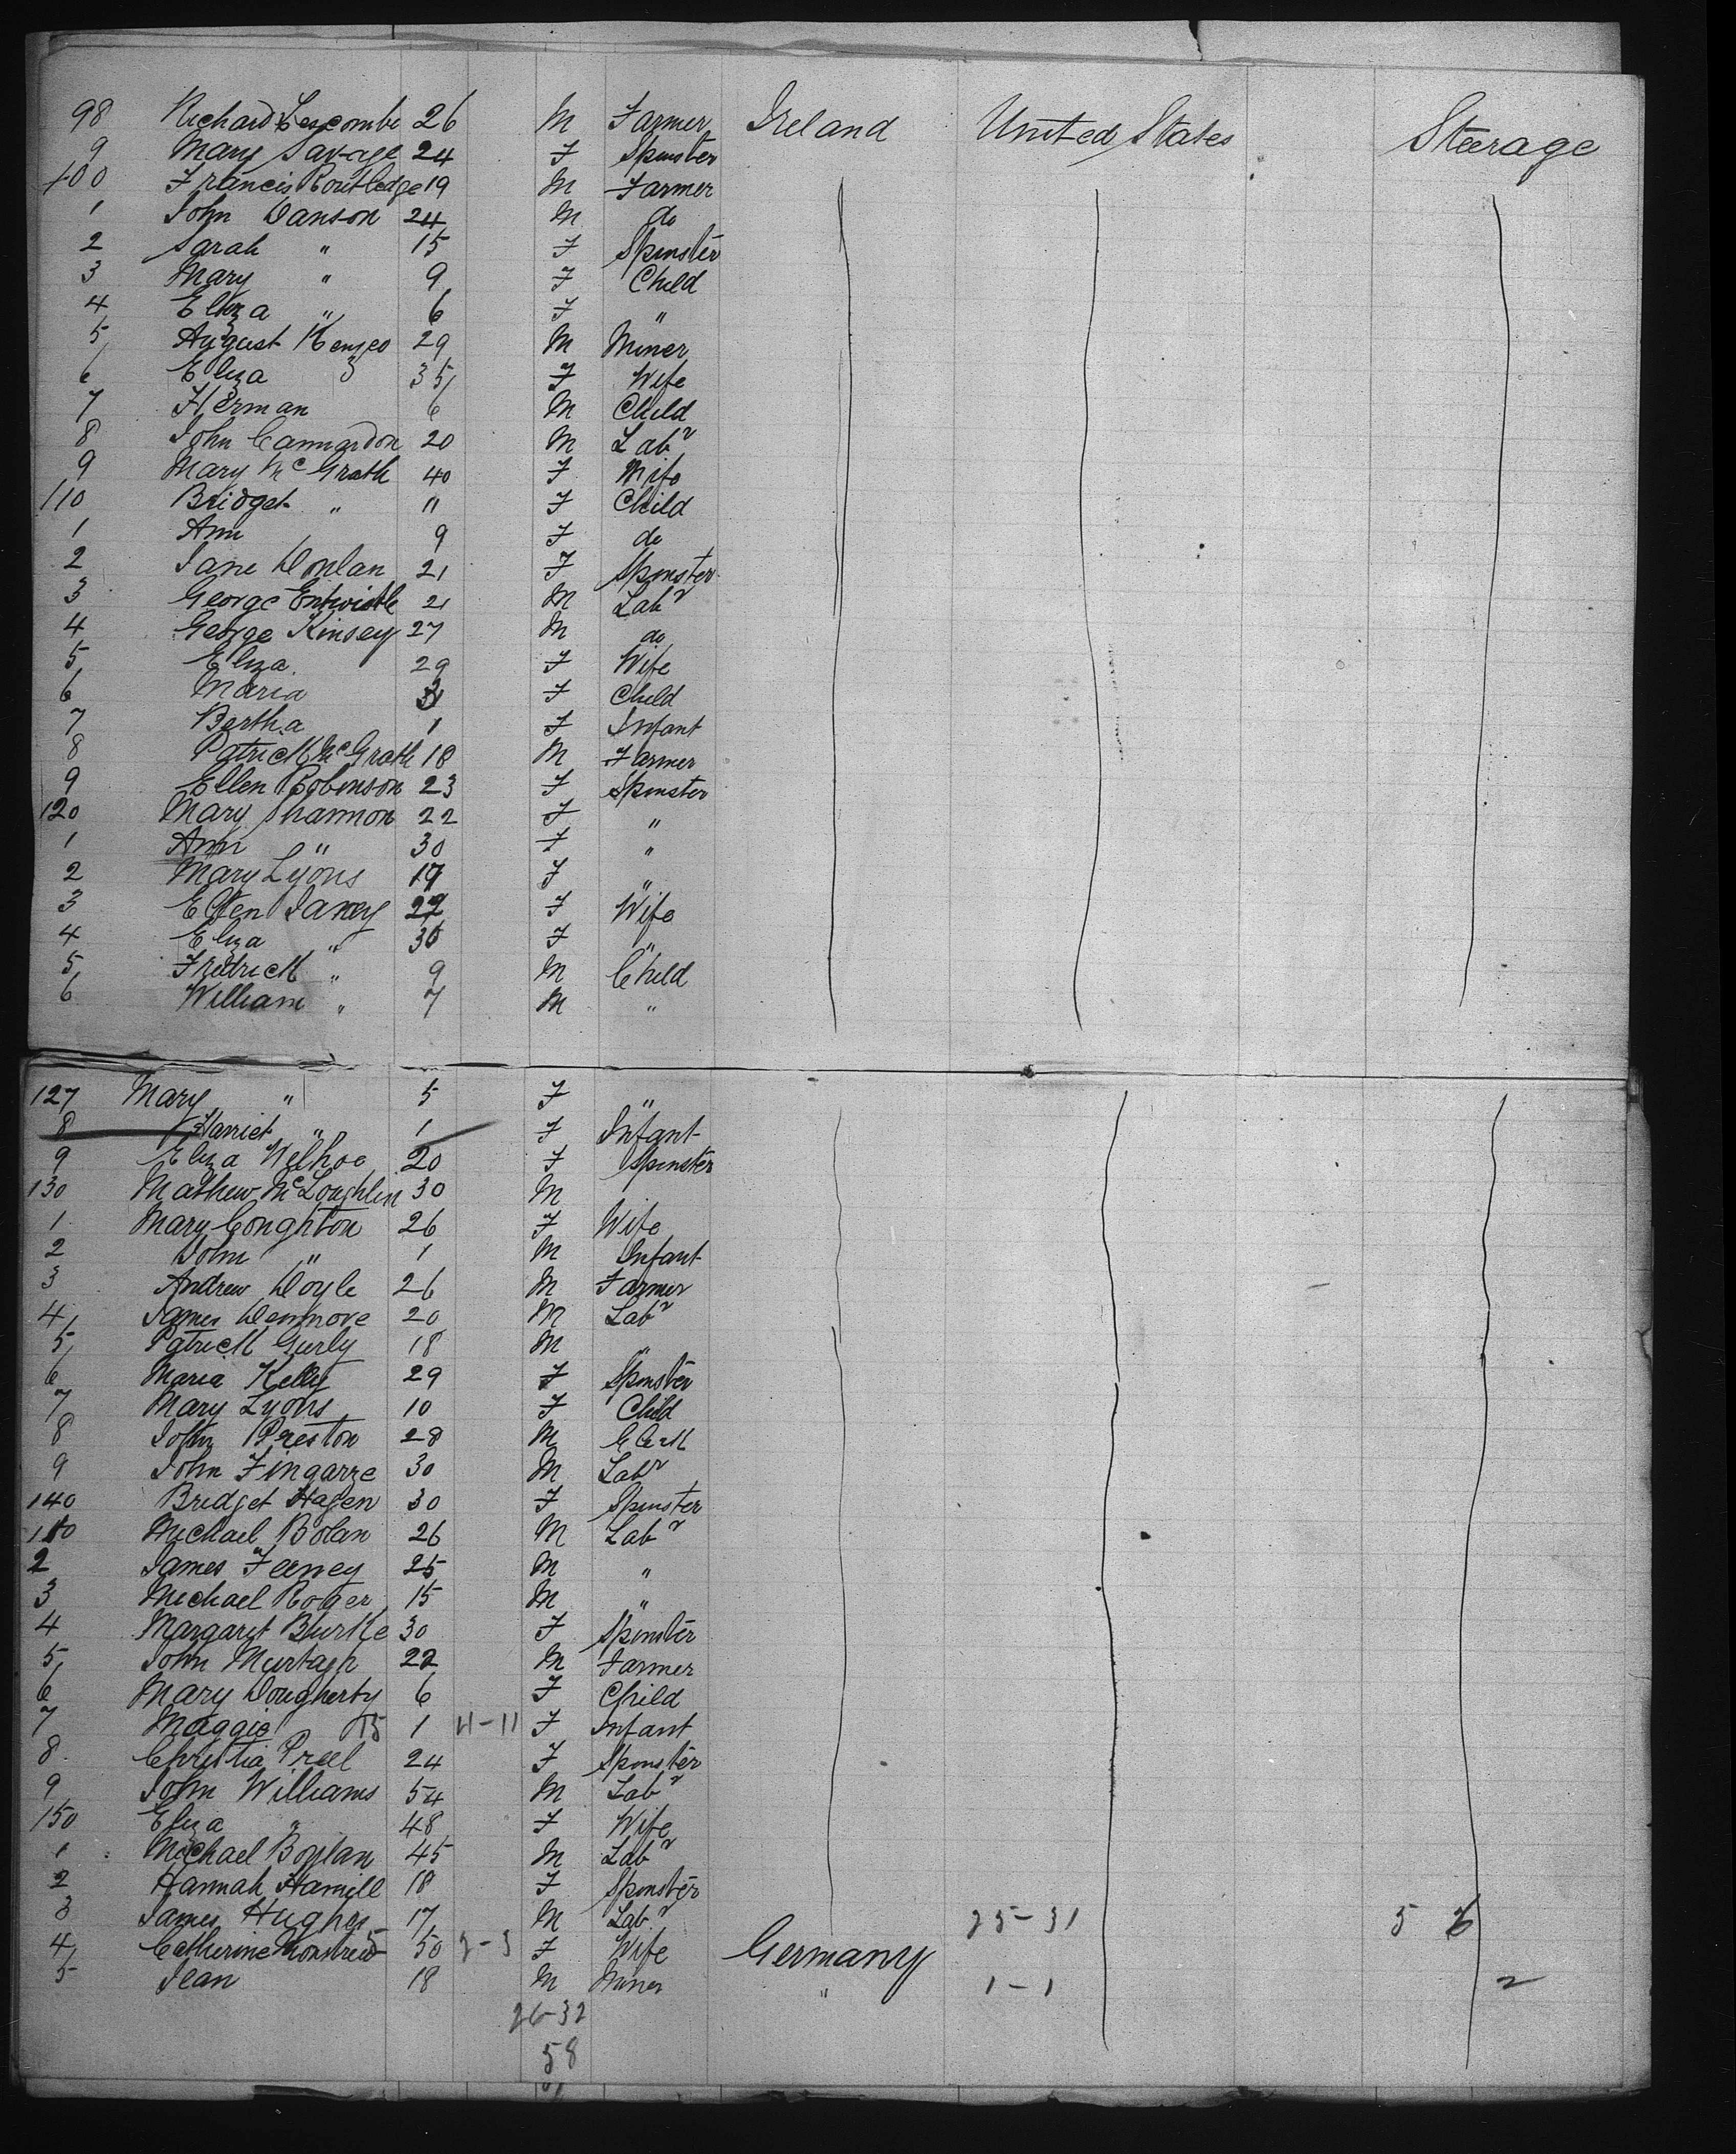 98 Richard Lescombe 26 M Farmer Ireland United States Steerage
9 Mary Savage 24 F Spinster
100 Francis Routledge 19 M Farmer
1 John Danson 24 M do
2 Sarah " 15 F Spinster
3 Mary " 9 F Child
4 Eliza " 6 F "
5 August 29 M Miner
6 Eliza 35 F Wife
7 Herman 6 M Child
8 John 20 M Labr
9 Mary McGrath 40 F Wife
110 Bridget " 11 F Child
1 Ann 9 F do
2 Jane Donlan 21 F Spinster
3 George Entwistle 21 M Labr
4 George Kinsey 27 M do
5 Eliza 29 F Wife
6 Maria F Child
7 Bertha 1 F Infant
8 Patrick McGrath 18 M Farmer
9 Ellen Robinson 23 F Spinster
120 Mary Shannon 22 F "
1 Ann " 30 F "
2 Mary Lyons 19 F "
3 Ellen 27 F Wife
4 Eliza " 30 F "
5 Fredrick " 9 M Child
6 William " 7 M "
127 Mary " 5 F "
8 Harriet " 1 F Infant
9 Eliza 20 F Spinster
130 Mathew McLoughlin 30 M
1 Mary Conghton 26 F Wife
2 John " 1 M Infant
3 Andrew Doyle 26 M Farmer
4 James 20 M Labr
5 Patrick Gurly 18 M "
6 Maria Kelly 29 F Spinster
7 Mary Lyons 10 F Child
8 John Preston 28 M Clerk
9 John 30 M Labr
140 Bridget Hagen 30 F Spinster
Michael Bolan 26 M Labr
2 James Feeney 25 M "
3 Michael Roger 15 M "
4 Margaret Burke 30 F Spinster
5 John Murtagh 22 M Farmer
6 Mary Dougherty 6 F Child
7 Maggie 15 1 11-11 F Infant
8 Christia Preel 24 F Spinster
9 John Williams 54 M Labr
150 Eliza " 48 F Wife
1 Michael Boylan 45 M Labr
2 Hannah Hamill 18 F Spinster
3 James Hughes 17 M Labr 25-31 5 6
4 Catherine 50 F Wife Germany
5 Jean 18 M Miner " 1-1 2
26-32
58